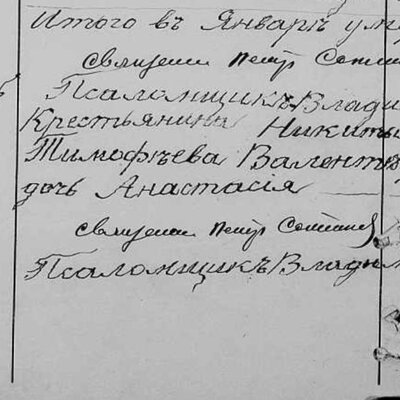 Итого въ Январѣ ум
священн Петр
Псаломщикъ Влади
Крестьянина Никиты
Тимофѣева Валент
дочь Анастасія
священн Петр
Псаломщикъ Владим